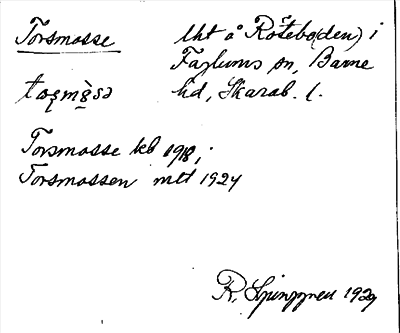 Torsmosse lht å Rötebo(den) i
Farlums sn, Barne
hd, Skarab. l.
Torsmosse kb 1918,
Torsmossen mtt 1924
R. Ljunggren 1929